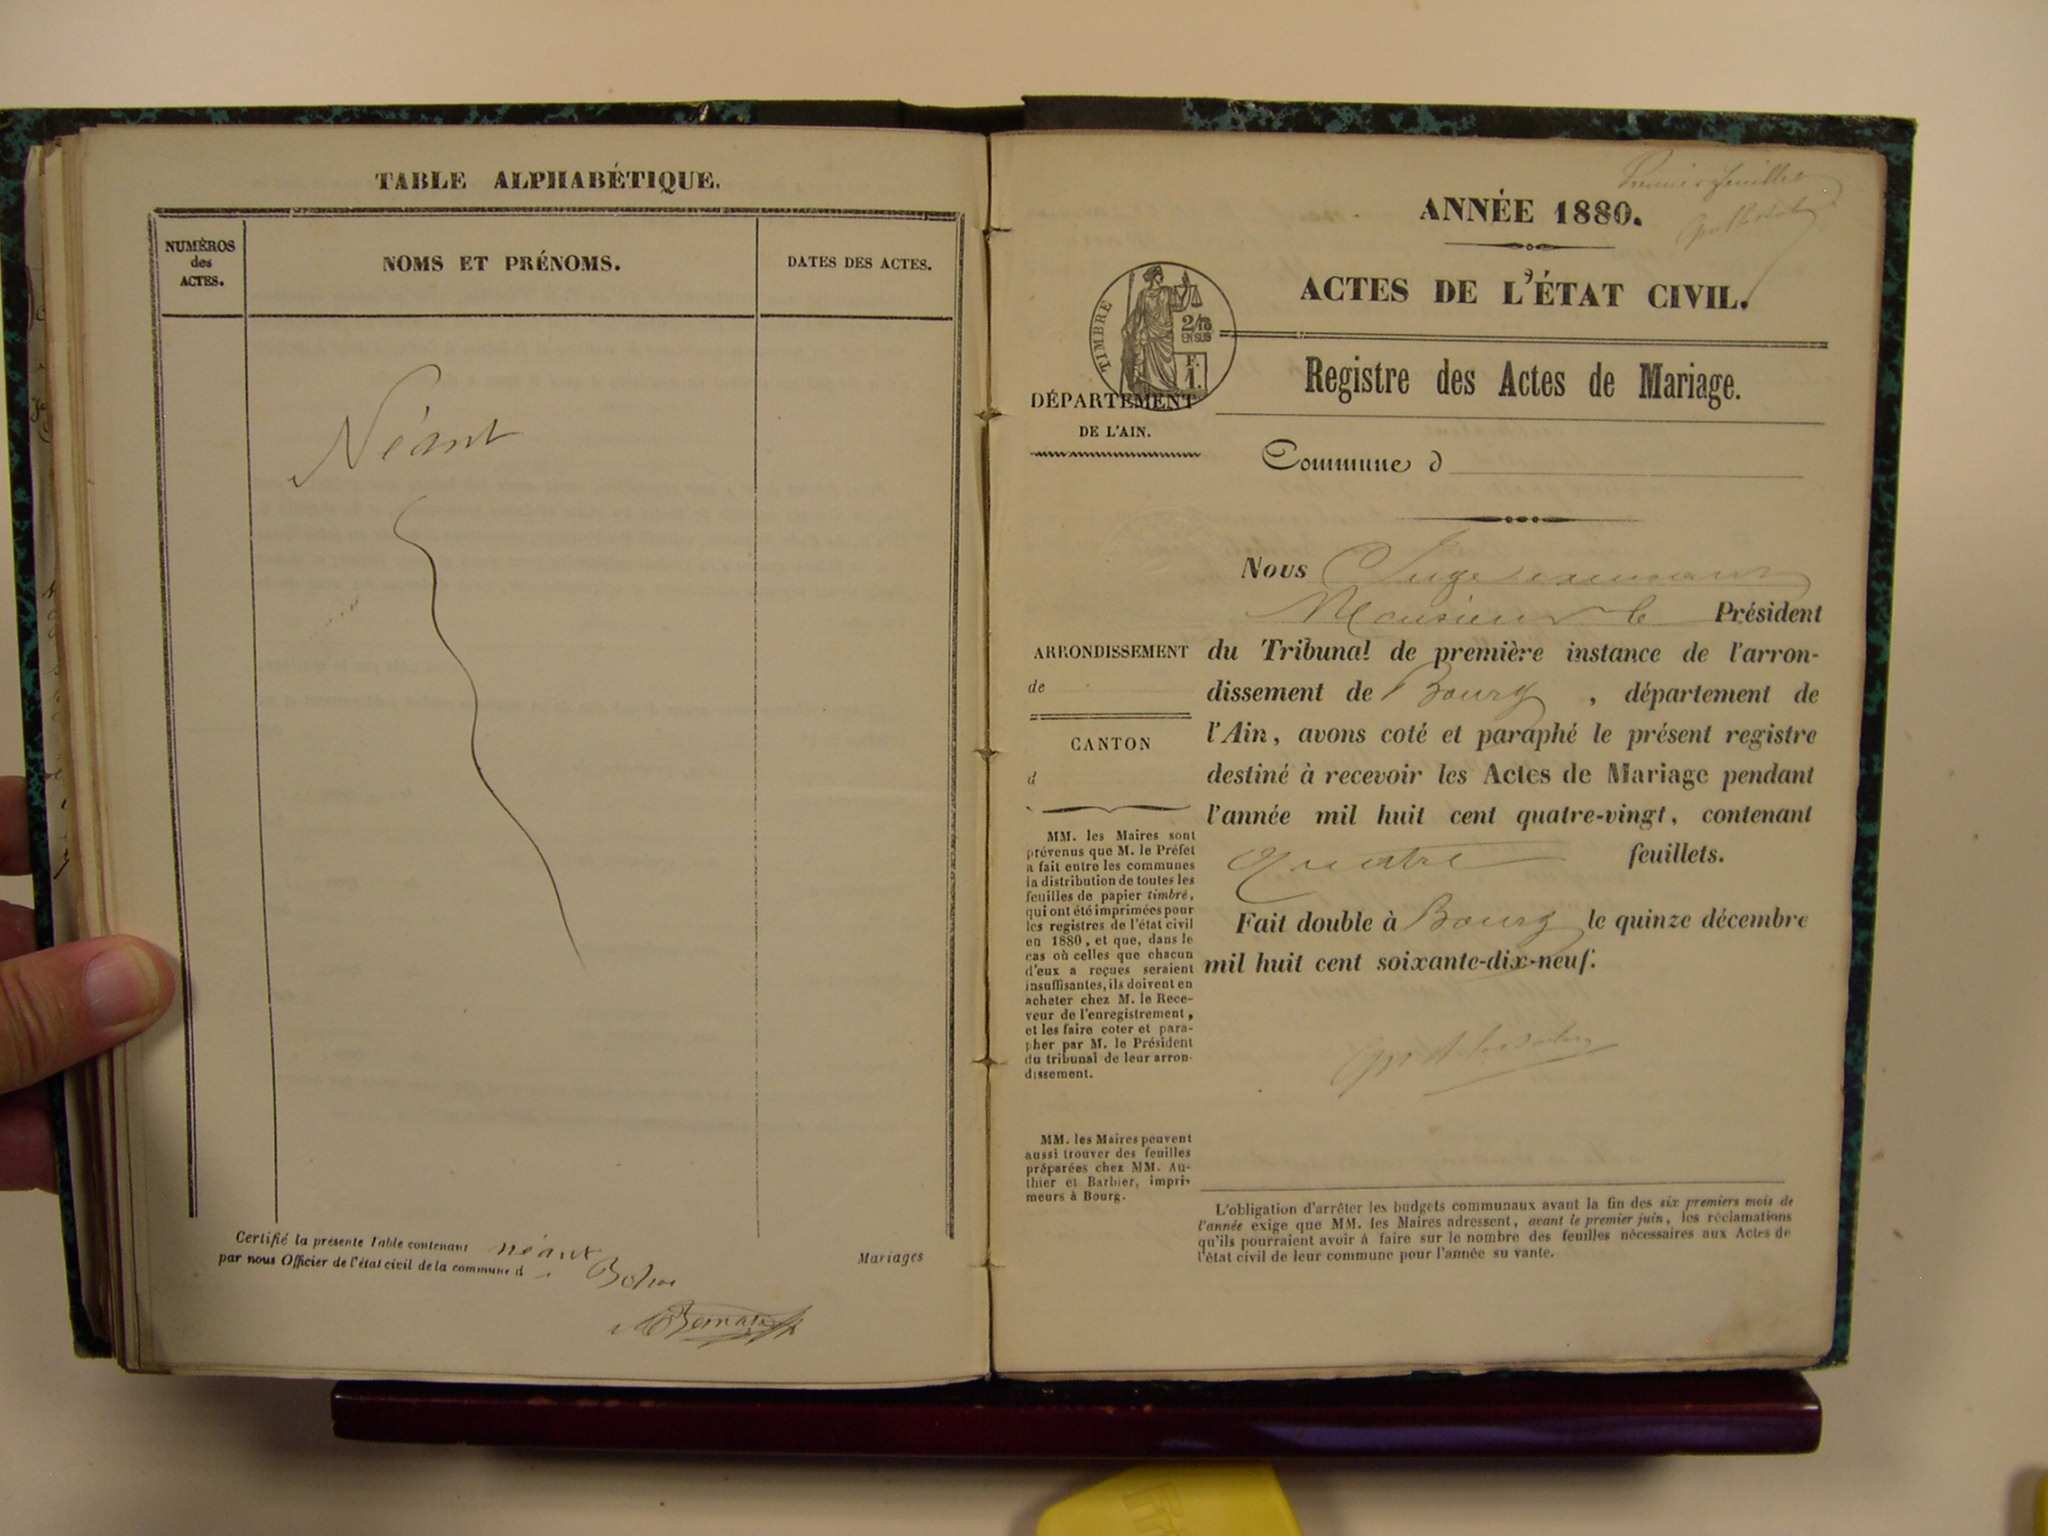 TABLE ALPHABÉTIQUE.
NUMÉROS
des
ACTES.
NOMS ET PRÉNOMS.
DATES DES ACTES.
Néant
Certifié la présente Table contenant néant
par nous Officier de l'état civil de la commune d
Mariages
Premier feuillet
ANNÉE 1880.
ACTES DE L'ÉTAT CIVIL.
TIMBRE
2/10
EN SUS
F.
1.
Registre des Actes de Mariage.
DÉPARTEMENT
DE L'AIN.
Commune d
Nous Juge
Monsieur le Président
ARRONDISSEMENT
de
CANTON
d
du Tribunal de première instance de l'arron-
dissement de Bourg, département de
l'Ain, avons coté et paraphé le présent registre
destiné à recevoir les Actes de Mariage pendant
l'année mil huit cent quatre-vingt, contenant
Quatre feuillets.
Fait double à Bourg le quinze décembre
mil huit cent soixante-dix-neuf.
MM. les Maires sont
prévenus que M. le Préfet
a fait entre les communes
la distribution de toutes les
feuilles de papier timbré,
qui ont été imprimées pour
les registres de l'état civil
en 1880, et que, dans le
cas où celles que chacun
d'eux a reçues seraient
insuffisantes, ils doivent en
acheter chez M. le Rece-
veur de l'enregistrement,
et les faire coter et para-
pher par M. le Président
du tribunal de leur arron-
dissement.
MM. les Maires peuvent
aussi trouver des feuilles
préparées chez MM. Au-
thier et Barbier, impri-
meurs à Bourg.
L'obligation d'arrêter les budgets communaux avant la fin des six premiers mois de
l'année exige que MM. les Maires adressent, avant le premier juin, les réclamations
qu'ils pourraient avoir à faire sur le nombre des feuilles nécessaires aux Actes de
l'état civil de leur commune pour l'année su vante.